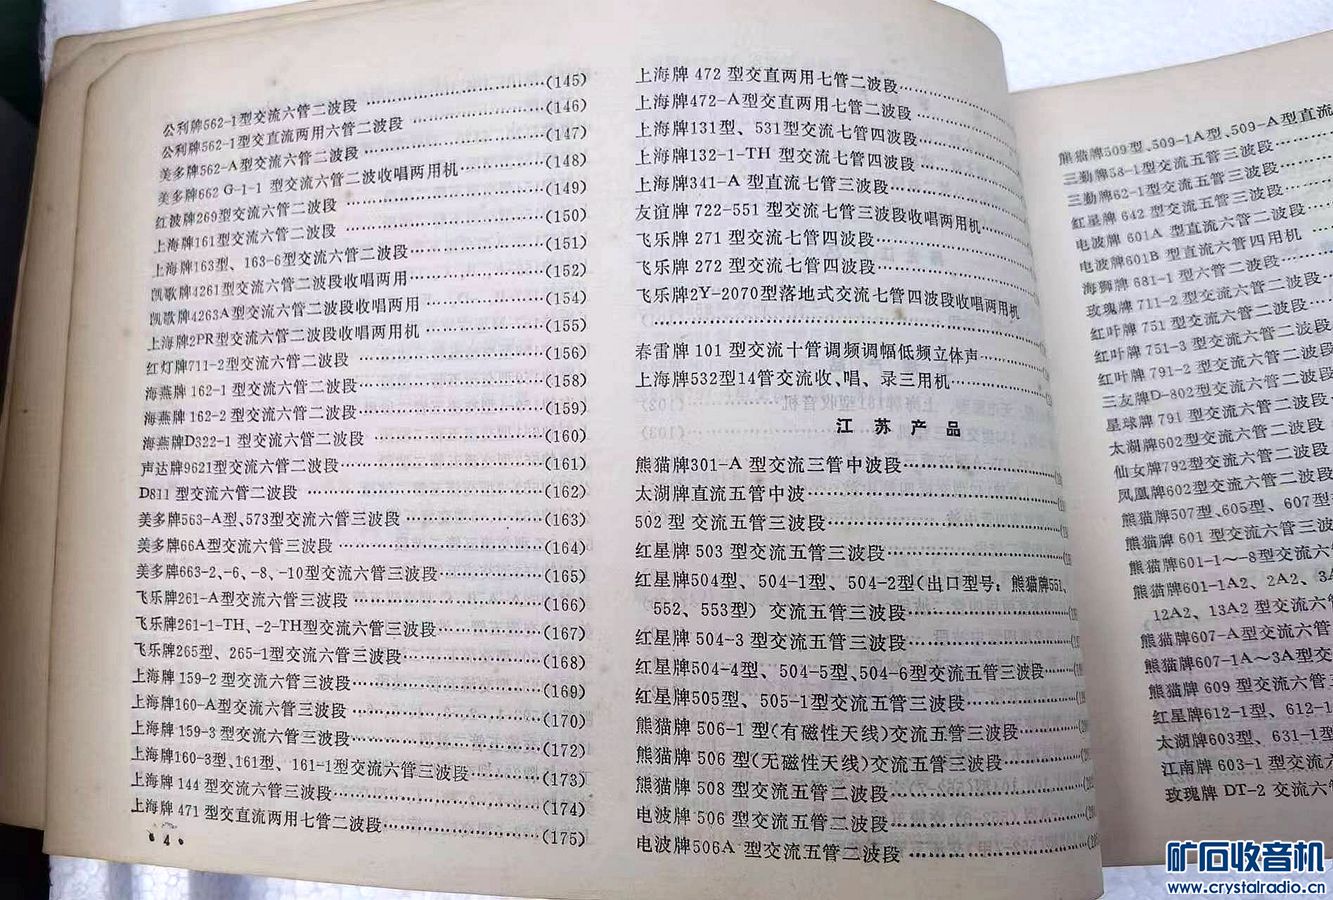 公利牌562-1型交流六管二波段…………………………(145)
公利牌562-1型交直流两用六管二波段…………………(146)
美多牌562-A型交流六管二波段…………………………(147)
美多牌662 G-1-1 型交流六管二波收唱两用机…………(148)
红波牌269型交流六管二波段……………………………(149)
上海牌161型交流六管二波段……………………………(150)
上海牌163型、163-6型交流六管二波段…………………(151)
凯歌牌4261型交流六管二波段收唱两用…………………(152)
凯歌牌4263A型交流六管二波段收唱两用………………(154)
上海牌2PR型交流六管二波段收唱两用机………………(155)
红灯牌711-2型交流六管二波段…………………………(156)
海燕牌 162-1 型交流六管二波段…………………………(158)
海燕牌 162-2 型交流六管二波段…………………………(159)
海燕牌D322-1 型交流六管二波段………………………(160)
声达牌9621型交流六管二波段……………………………(161)
D811 型交流六管二波段…………………………………(162)
美多牌563-A型、573型交流六管三波段…………………(163)
美多牌66A型交流六管三波段……………………………(164)
美多牌663-2、-6、-8、-10型交流六管三波段……………(165)
飞乐牌261-A型交流六管三波段…………………………(166)
飞乐牌261-1-TH、-2-TH型交流六管三波段……………(167)
飞乐牌265型、265-1型交流六管三波段…………………(168)
上海牌 159-2 型交流六管三波段…………………………(169)
上海牌160-A型交流六管三波段…………………………(170)
上海牌 159-3 型交流六管三波段…………………………(172)
上海牌160-3型、161型、161-1型交流六管三波段………(173)
上海牌 144 型交流六管三波段……………………………(174)
上海牌 471 型交直流两用七管二波段……………………(175)
• 4 •
上海牌 472 型交直两用七管二波段…………
上海牌472-A型交直两用七管二波段…………
上海牌131型、531型交流七管四波段…………
上海牌132-1-TH 型交流七管四波段…………
上海牌341-A 型直流七管三波段…………
友谊牌 722-551 型交流七管三波段收唱两用机……
飞乐牌 271 型交流七管四波段…………
飞乐牌 272 型交流七管四波段…………
飞乐牌2Y-2070型落地式交流七管四波段收唱两用机
…………………………
春雷牌 101 型交流十管调频调幅低频立体声……
上海牌532型14管交流收、唱、录三用机…………
江 苏 产 品
熊猫牌301-A 型交流三管中波段…………
太湖牌直流五管中波…………
502 型 交流五管三波段…………
红星牌 503 型交流五管三波段…………
红星牌504型、504-1型、504-2型(出口型号：熊猫牌551、
552、553型) 交流五管三波段…………
红星牌 504-3 型交流五管三波段…………
红星牌504-4型、504-5型、504-6型交流五管三波段……
红星牌505型、505-1型交流五管三波段…………
熊猫牌 506-1 型(有磁性天线)交流五管三波段……
熊猫牌 506 型(无磁性天线)交流五管三波段……
熊猫牌 508 型交流五管二波段…………
电波牌 506 型交流五管二波段…………
电波牌506A 型交流五管二波段…………
熊猫牌509型、509-1A型、509-A型直流
三勤牌58-1型交流五管三波段……
三勤牌62-1型交流五管三波段……
红星牌 642 型交流五管三波段……
电波牌 601A 型直流六管二波段……
电波牌601B 型直流六管四用机
海狮牌 681-1 型六管二波段……
玫瑰牌 711-2 型交流六管二波段……
红叶牌 751 型交流六管二波段……
红叶牌 751-3 型交流六管二波段
红叶牌 791-2 型交流六管二波段
三友牌D-802型交流六管二波段
星球牌 791 型交流六管二波段
太湖牌602型交流六管二波段
仙女牌792型交流六管二波段
凤凰牌602型交流六管二波段
熊猫牌507型、605型、607型
熊猫牌 601 型交流六管三波
熊猫牌601-1～-8型交流六
熊猫牌601-1A2、2A2、3A
12A2、13A2 型交流六管
熊猫牌607-A型交流六管
熊猫牌607-1A～3A型交
熊猫牌 609 型交流六管三
红星牌612-1型、612-1
太湖牌603型、631-1型
江南牌 603-1 型交流六
玫瑰牌 DT-2 交流六
矿石收音机
www.crystalradio.cn